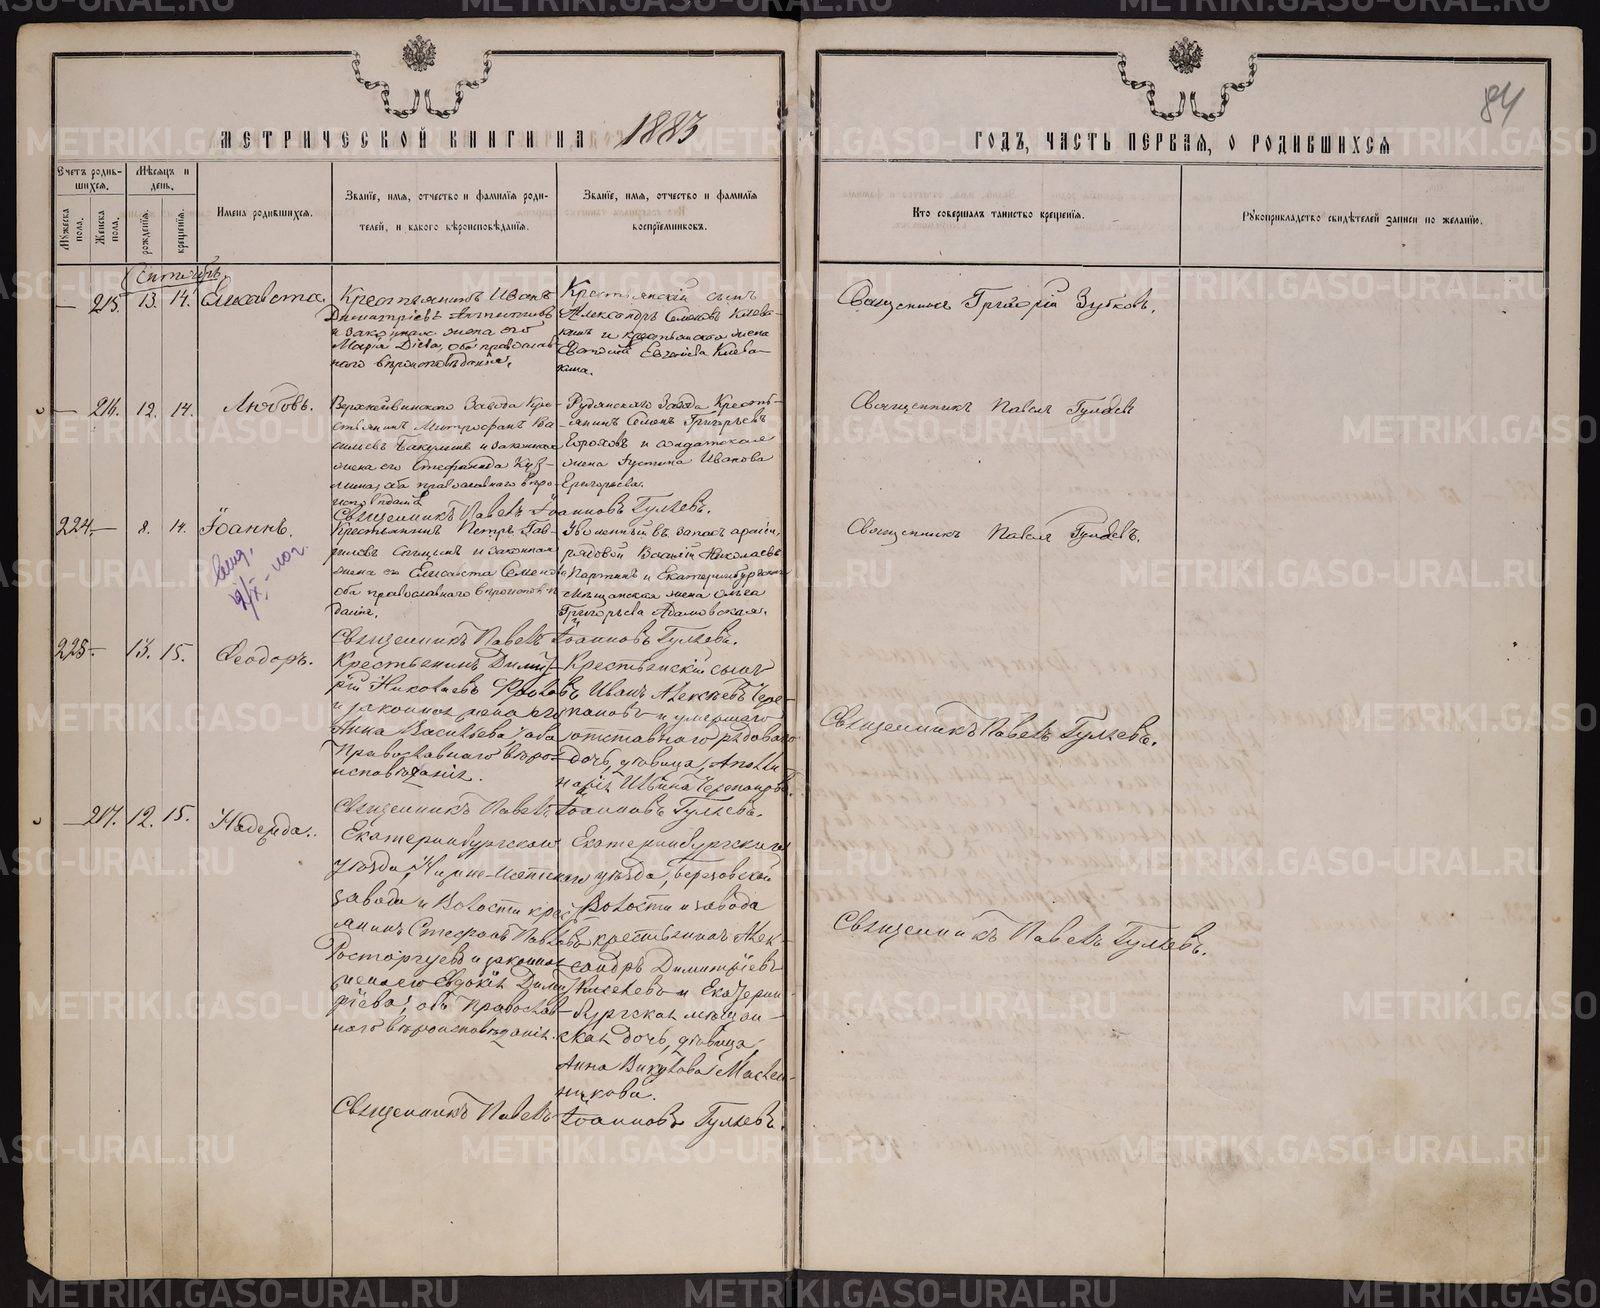 84
МЕТРИЧЕСКОЙ КНИГИ НА 1883
ГОДЪ, ЧАСТЬ ПЕРВАЯ, О РОДИВШИХСЯ
Счетъ родив-
шихся.
Мужеска пола.
Женска пола.
Мѣсяцъ и
день.
рожденія.
крещенія.
Имена родившихся.
Званіе, имя, отчество и фамилія роди-
телей, и какого вѣроисповѣданія.
Званіе, имя, отчество и фамилія
воспріемниковъ.
Кто совершалъ таинство крещенія.
Рукоприкладство свидѣтелей записи по желанію.
Сентябрь.
— 215. 13. 14. Елисавета
Крестьянинъ Иванъ
Димитріевъ
и законная жена его
Марія обa православ-
наго вѣроисповѣданія.
Крестьянскій сынъ
Александръ Семеновъ Клева-
кинъ и крестьянская жена
Евгеніева Клева-
кина.
Священникъ Григорій Зубковъ.
— 216. 12. 14. Любовь.
Верхнейвинскаго Завода Кре-
стьянинъ Митрофанъ Ва-
сильевъ Бакулинъ и законная
жена его Стефанида Куз-
мина, оба православнаго вѣро-
исповѣданія
Рудянскаго Завода Кресть-
янинъ Семенъ Григорьевъ
и солдатская
жена Іустина Иванова
Григорьева.
Священникъ Павелъ Гуляевъ
Священникъ Павелъ Іоанновъ Гуляевъ.
224. — 8. 14. Іоаннъ.
Крестьянинъ Петръ Гав-
риловъ и законная
жена его Елисавета Семенова
оба православнаго вѣроисповѣ-
данія.
Уволенный въ запасъ арміи,
рядовой Василій Николаевъ
Партинъ и Екатеринбургская
мѣщанская жена Ольга
Григорьева Адамовская.
Священникъ Павелъ Гуляевъ.
Священникъ Павелъ Іоанновъ Гуляевъ.
225. — 13. 15. Ѳеодоръ.
Крестьянинъ Димит-
рій Николаевъ Фроловъ
и законная жена его
Анна Васильева, оба
Православнаго вѣро-
исповѣданія.
Крестьянскій сынъ
Иванъ Алексѣевъ Чере-
пановъ и умершаго
отставнаго рядоваго
дочь, дѣвица, Аполли-
нарія Ильина Черепанова.
Священникъ Павелъ Гуляевъ.
Священникъ Павелъ Іоанновъ Гуляевъ.
— 217. 12. 15. Надежда.
Екатеринбургскаго
уѣзда, Нижне-Исетскаго
завода и Волости крест-
янинъ Стефанъ Павловъ
Расторгуевъ и законная
жена его Евдокія Димит-
ріева, оба Православ-
наго вѣроисповѣданія.
Екатеринбургскаго
уѣзда, Березовской
Волости и завода
крестьянинъ Алек-
сандръ Димитріевъ
Киселевъ и Екатерин-
бургская мѣщан-
ская дочь, дѣвица,
Анна Викулова Маслен-
никова.
Священникъ Павелъ Гуляевъ.
Священникъ Павелъ Іоанновъ Гуляевъ.
METRIKI.GASO-URAL.RU